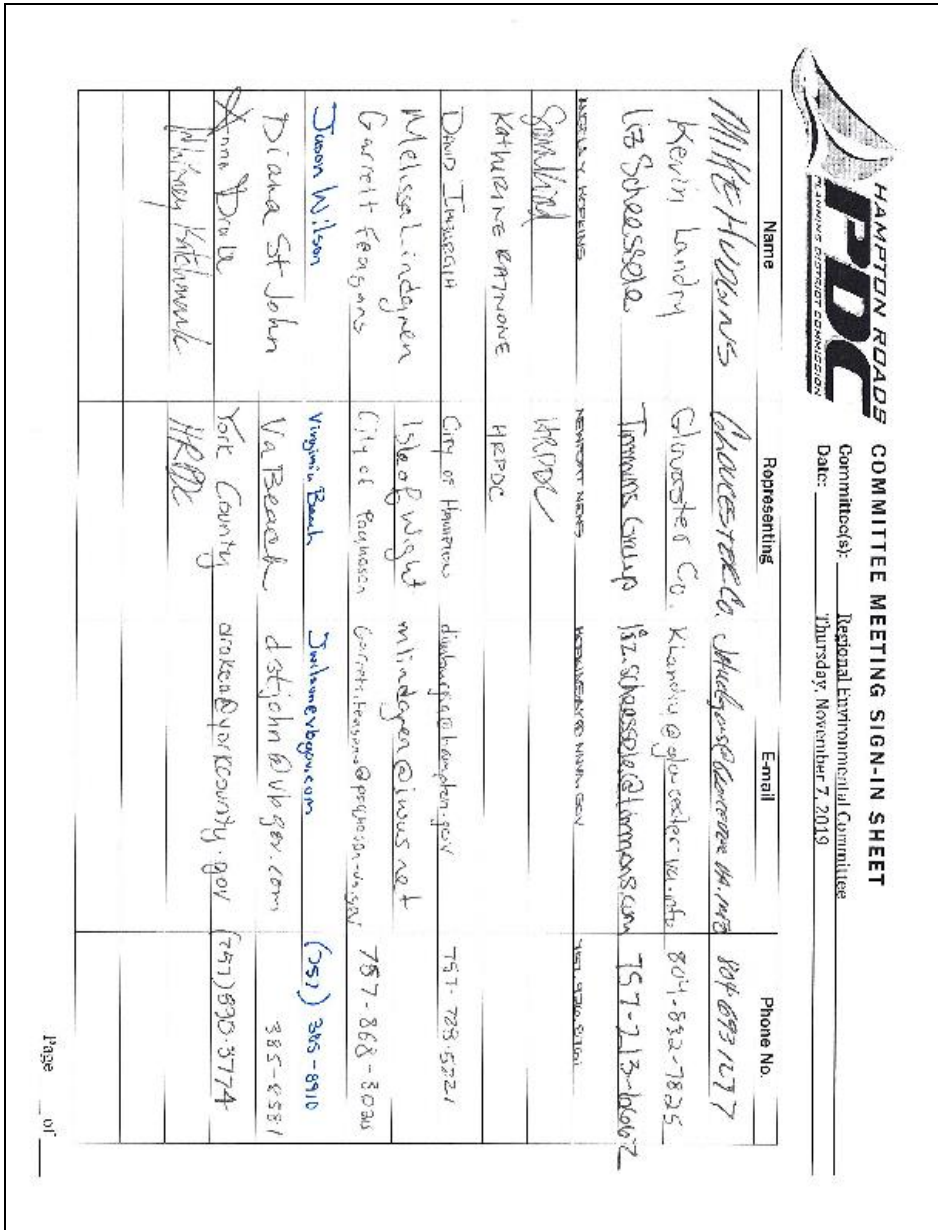 HAMPTON ROADS
PDC
PLANNING DISTRICT COMMISSION
COMMITTEE MEETING SIGN-IN SHEET
Committee(s): Regional Environmental Committee
Date: Thursday, November 7, 2019
Name Representing E-mail Phone No.
MIKE HUDGINS GLOUCESTER Co. 804 693 1277
Kevin Landry Gloucester Co. Klandry@gloucester-va.info 804-832-7825
Liz Scheessele Timmons Group liz.scheessele@timmons.com 757-213-6662
HOPKINS NEWPORT NEWS
HRPDC
KATHERINE HRPDC
DAVID IMBURGIA City of HAMPTON dimburgia@hampton.gov 757-728-5221
Melissa Lindgren Isle of Wight mlindgren@iwus.net
Garrett Feagans City of Poquoson 757-868-
Jason Wilson Virginia Beach Jwilson@vbgov.com (757) 385-8910
Diana St John Va Beach dstjohn@vbgov.com
Anna Drake York County drakea@yorkcounty.gov (757) 890-3774
Whitney Katchmark HRPDC
Page of